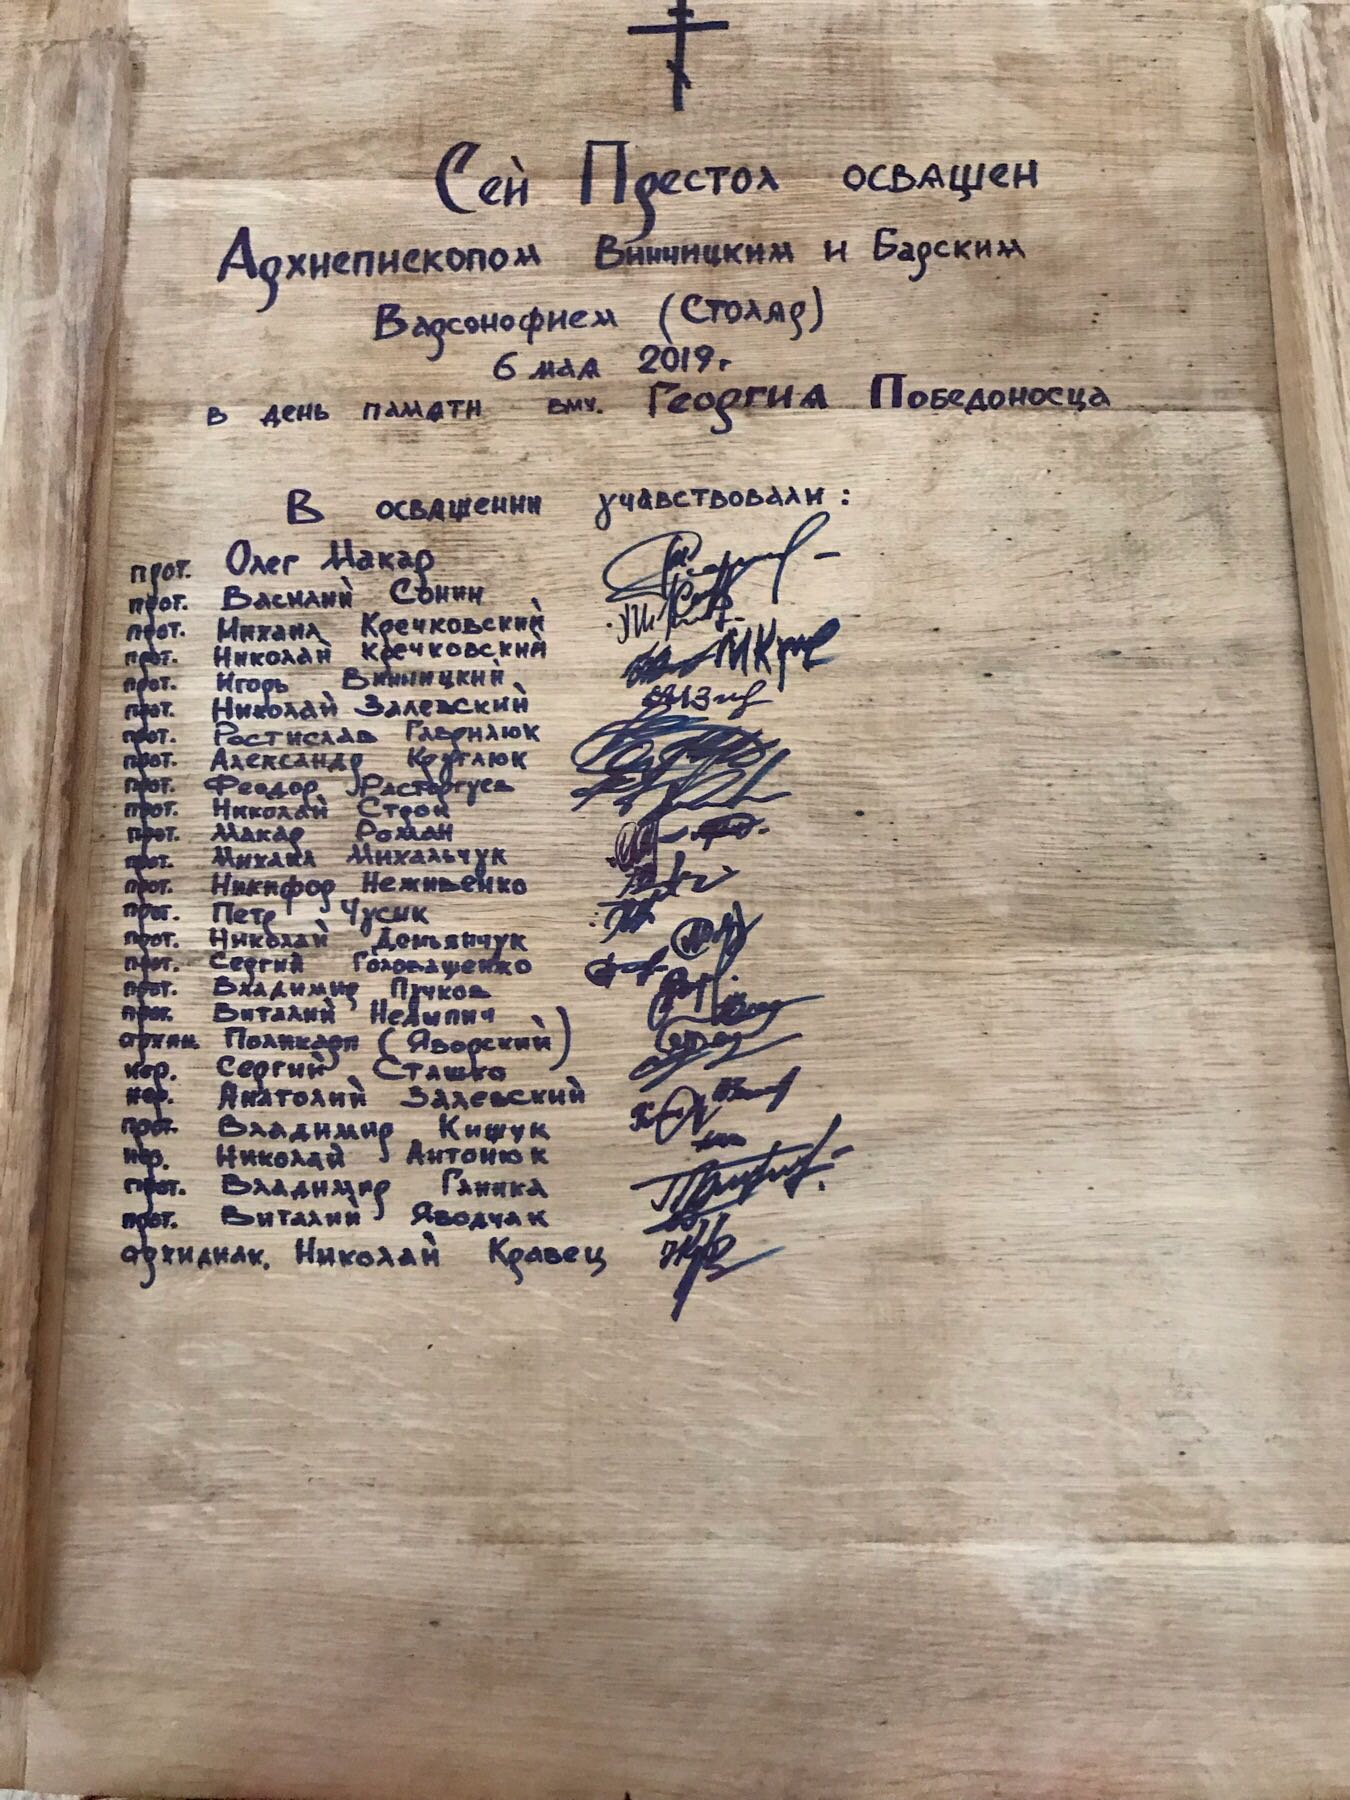 Сей Престол освящен
Архиепископом Винницким и Барским
Варсонофием (Столяр)
6 мая 2019г
в день памяти вмч. Георгия Победоносца
В освящении учавствовали:
прот. Олег Макар
прот. Василий Сонин
прот. Михаил Кречковский
прот. Николай Кречковский
прот. Игорь Винницкий
прот. Николай Залевский
прот. Ростислав Гаврилюк
прот. Александр Круглюк
прот. Феодор Расторгуев
прот. Николай Строй
прот. Макар Роман
прот. Михаил Михальчук
прот. Никифор Неживенко
прот. Петр Чусик
прот. Николай Демьянчук
прот. Сергий Головащенко
прот. Владимир Пучков
прот. Виталий Нелыпич
архим. Поликарп (Яворский)
иер. Сергий Сташко
иер. Анатолий Залевский
прот. Владимир Кищук
иер. Николай Антонюк
прот. Владимир Глинка
прот. Виталий Яводчак
архидиак. Николай Кравец